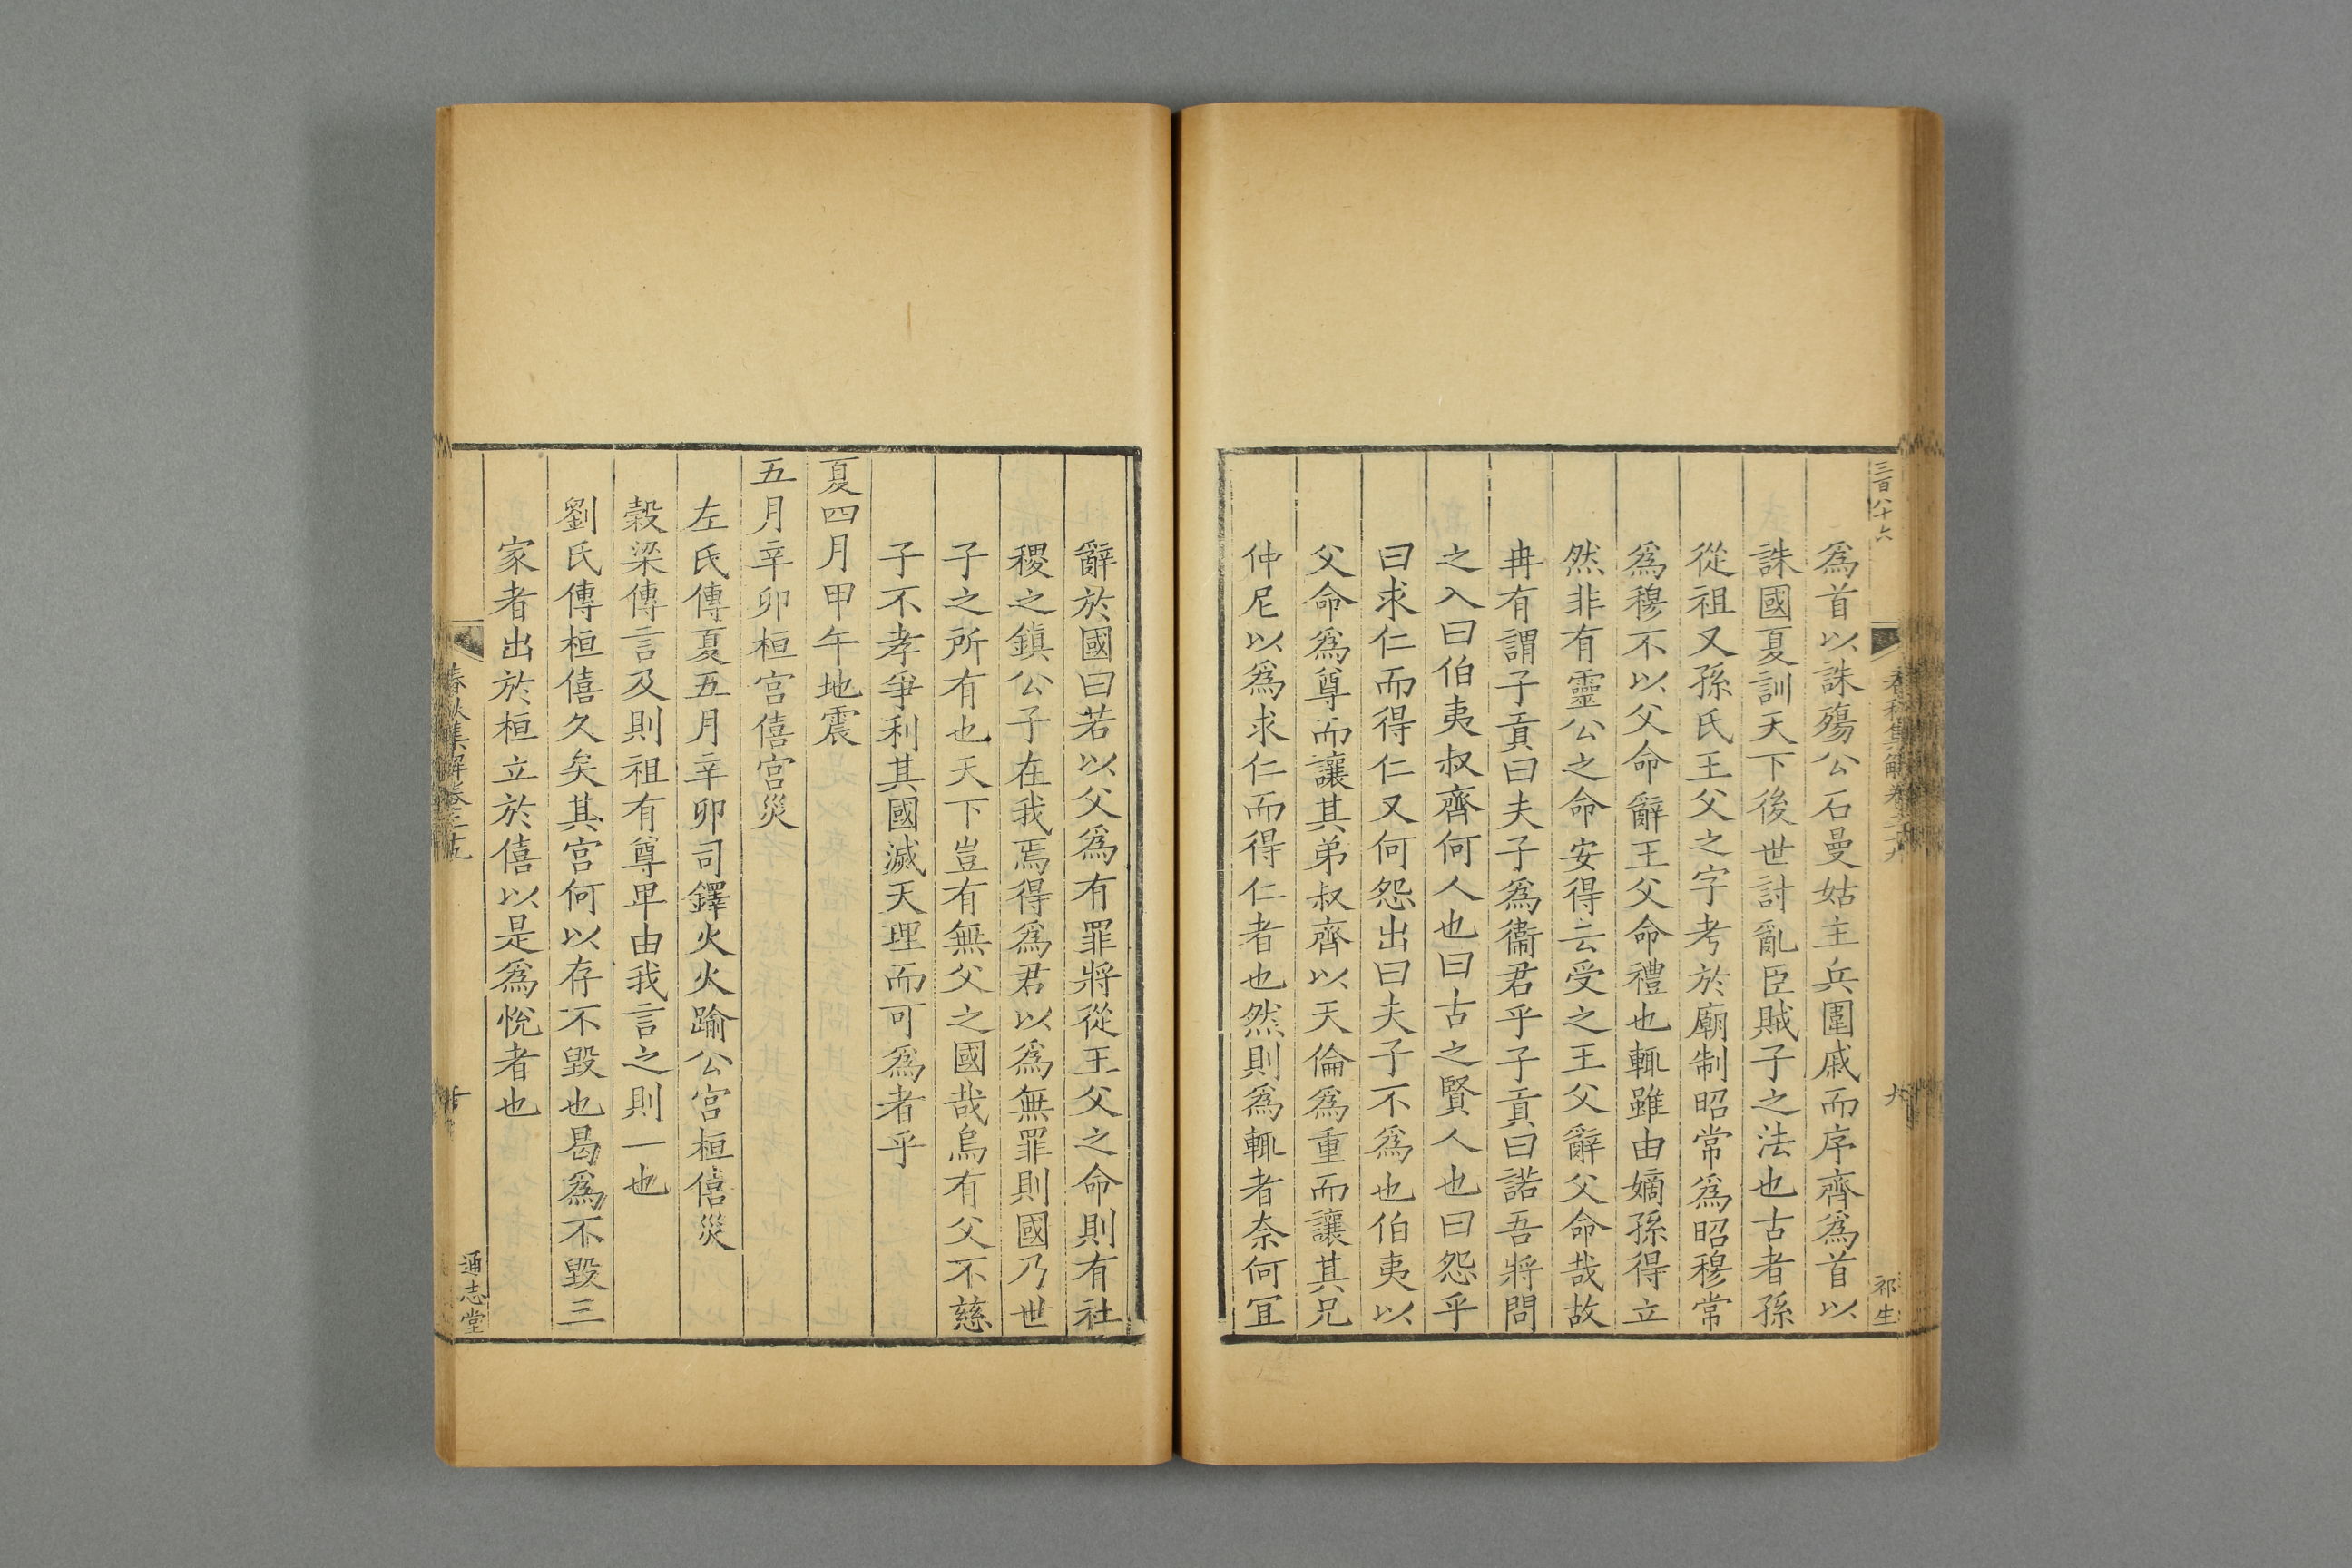 三百八十六
祁生
爲首以誅殤公石曼姑主兵圍戚而序齊爲首以
誅國夏訓天下後世討亂臣賊子之法也古者孫
從祖又孫氏王父之字考於廟制昭常爲昭穆常
爲穆不以父命辭王父命禮也輒雖由嫡孫得立
然非有靈公之命安得云受之王父辭父命哉故
冉有謂子貢曰夫子爲衞君乎子貢曰諾吾將問
之入曰伯夷叔齊何人也曰古之賢人也曰怨乎
曰求仁而得仁又何怨出曰夫子不爲也伯夷以
父命爲尊而讓其弟叔齊以天倫爲重而讓其兄
仲尼以爲求仁而得仁者也然則爲輒者奈何冝
辭於國曰若以父爲有罪將從王父之命則有社
稷之鎮公子在我焉得爲君以爲無罪則國乃世
子之所有也天下豈有無父之國哉烏有父不慈
子不孝爭利其國滅天理而可爲者乎
夏四月甲午地震
五月辛卯桓宫僖宫災
左氏傳夏五月辛卯司鐸火火踰公宫桓僖災
榖梁傳言及則祖有尊卑由我言之則一也
劉氏傳桓僖久矣其宫何以存不毀也曷爲不毀三
家者出於桓立於僖以是爲悅者也
春秋集解卷
通志堂